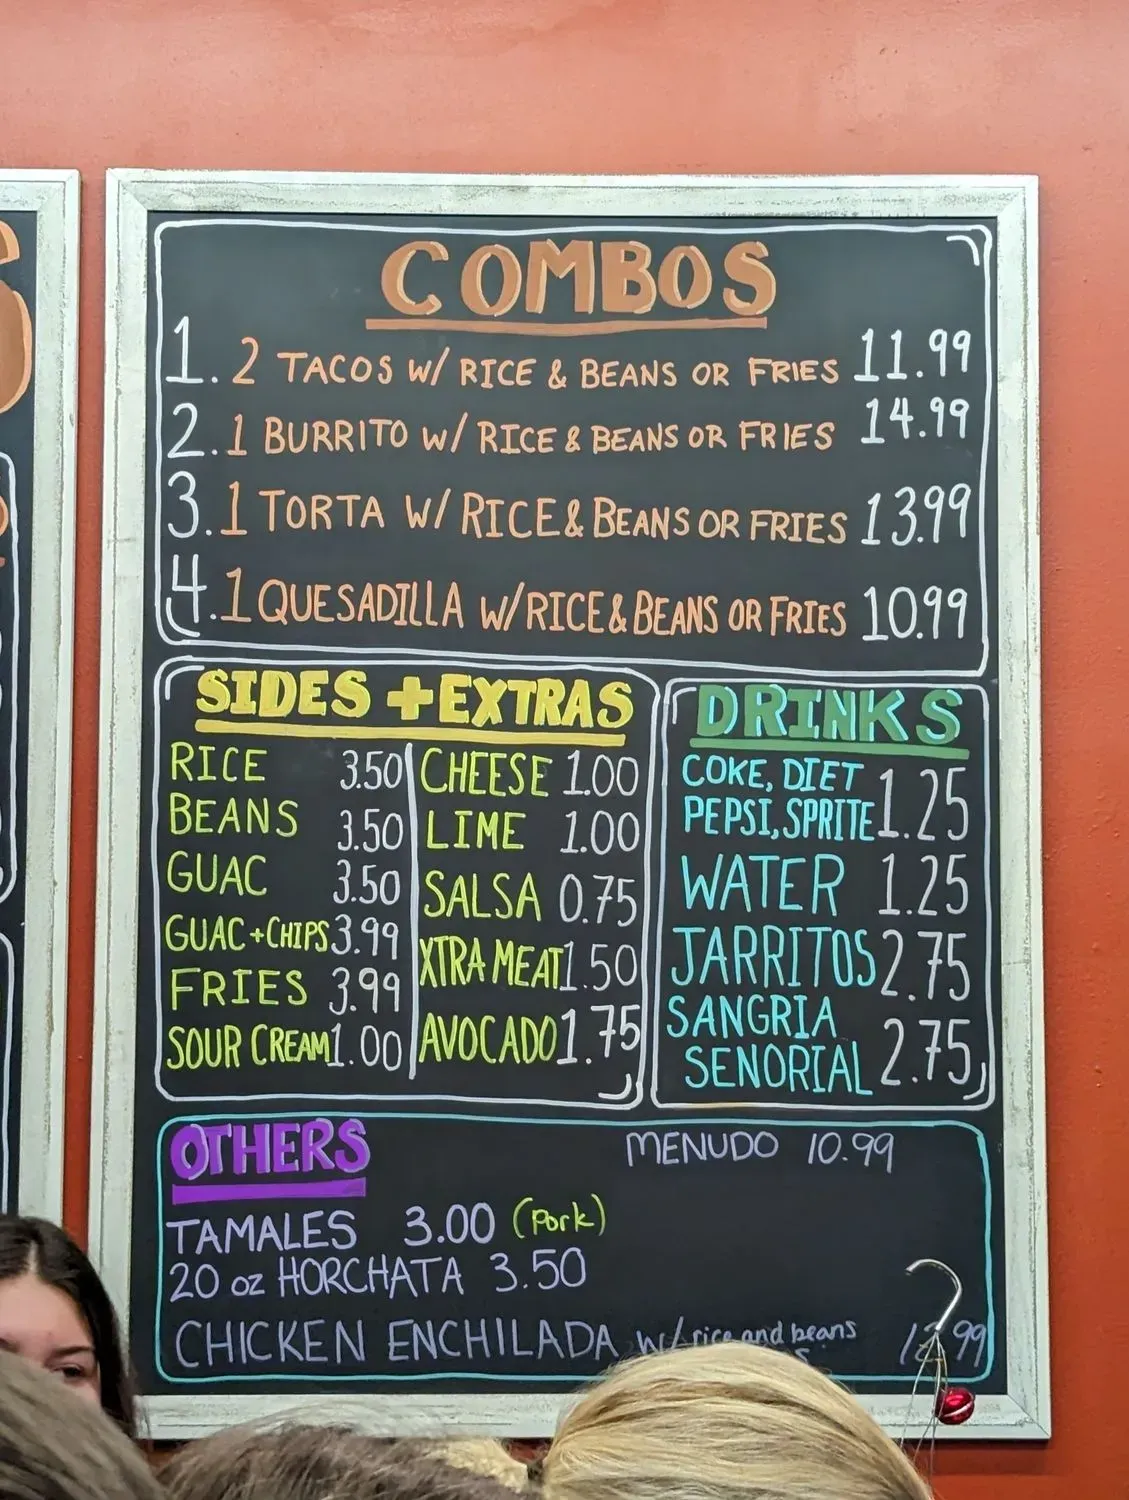 COMBOS
1. 2 TACOS W/ RICE & BEANS OR FRIES 11.99
2. 1 BURRITO W/ RICE & BEANS OR FRIES 14.99
3. 1 TORTA W/ RICE & BEANS OR FRIES 13.99
4. 1 QUESADILLA W/ RICE & BEANS OR FRIES 10.99
SIDES + EXTRAS
RICE 3.50
BEANS 3.50
GUAC 3.50
GUAC + CHIPS 3.99
FRIES 3.99
SOUR CREAM 1.00
CHEESE 1.00
LIME 1.00
SALSA 0.75
XTRA MEAT 1.50
AVOCADO 1.75
DRINKS
COKE, DIET
PEPSI, SPRITE 1.25
WATER 1.25
JARRITOS 2.75
SANGRIA
SENORIAL 2.75
OTHERS
MENUDO 10.99
TAMALES 3.00 (Pork)
20 oz HORCHATA 3.50
CHICKEN ENCHILADA w/ rice and beans